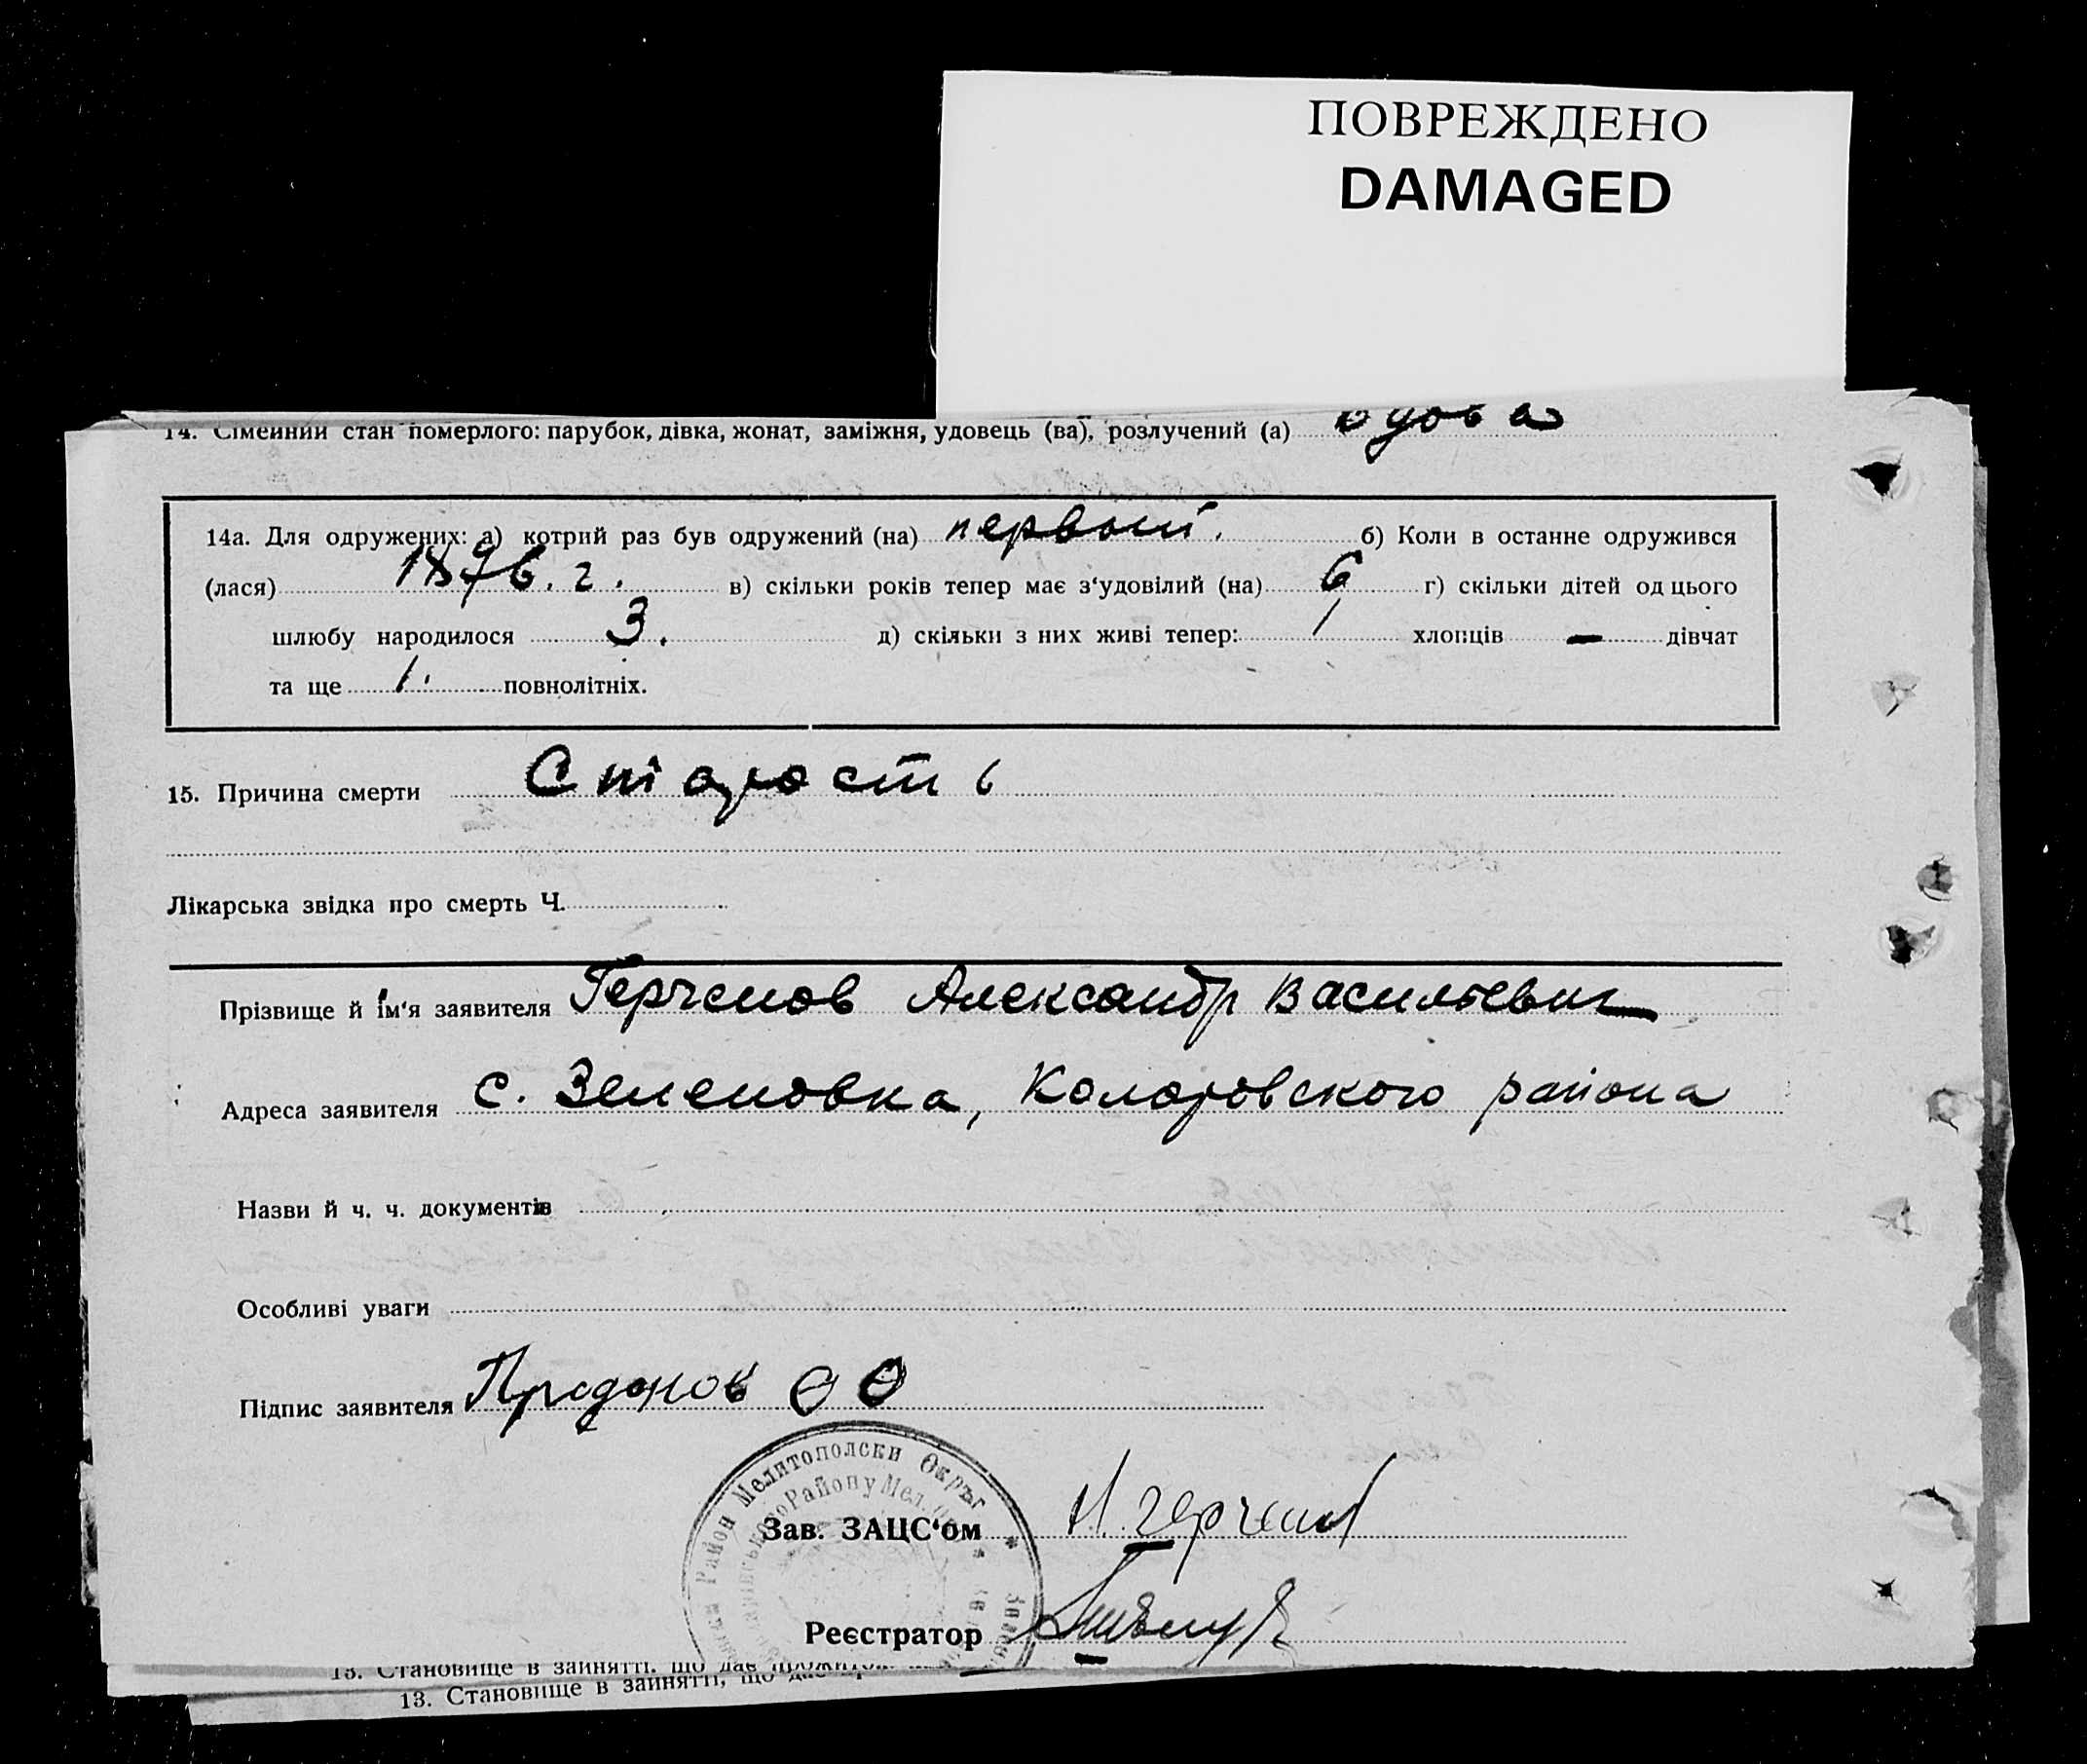 ПОВРЕЖДЕНО
DAMAGED
14. Сімейний стан померлого: парубок, дівка, жонат, заміжня, удовець (ва), розлучений (а) вдова
14а. Для одружених: а) котрий раз був одружений (на) первый. б) Коли в останне одружився
(лася) 1876. г. в) скільки років тепер має з‘удовілий (на) 6 г) скільки дітей од цього
шлюбу народилося 3. д) скільки з них живі тепер: 1 хлопців — дівчат
та ще 1. повнолітніх.
15. Причина смерти Старость
Лікарська звідка про смерть Ч.
Прізвище й ім‘я заявителя Герченов Александр Васильевич
Адреса заявителя с. Зеленовка, Коларовского района
Назви й ч. ч. документів
Особливі уваги
Підпис заявителя
Район Мелитополски Окръг
Району Мел.
Зав. ЗАЦС‘ом
Реєстратор
13. Становище в занятті, що дає
13. Становище в занятті, що